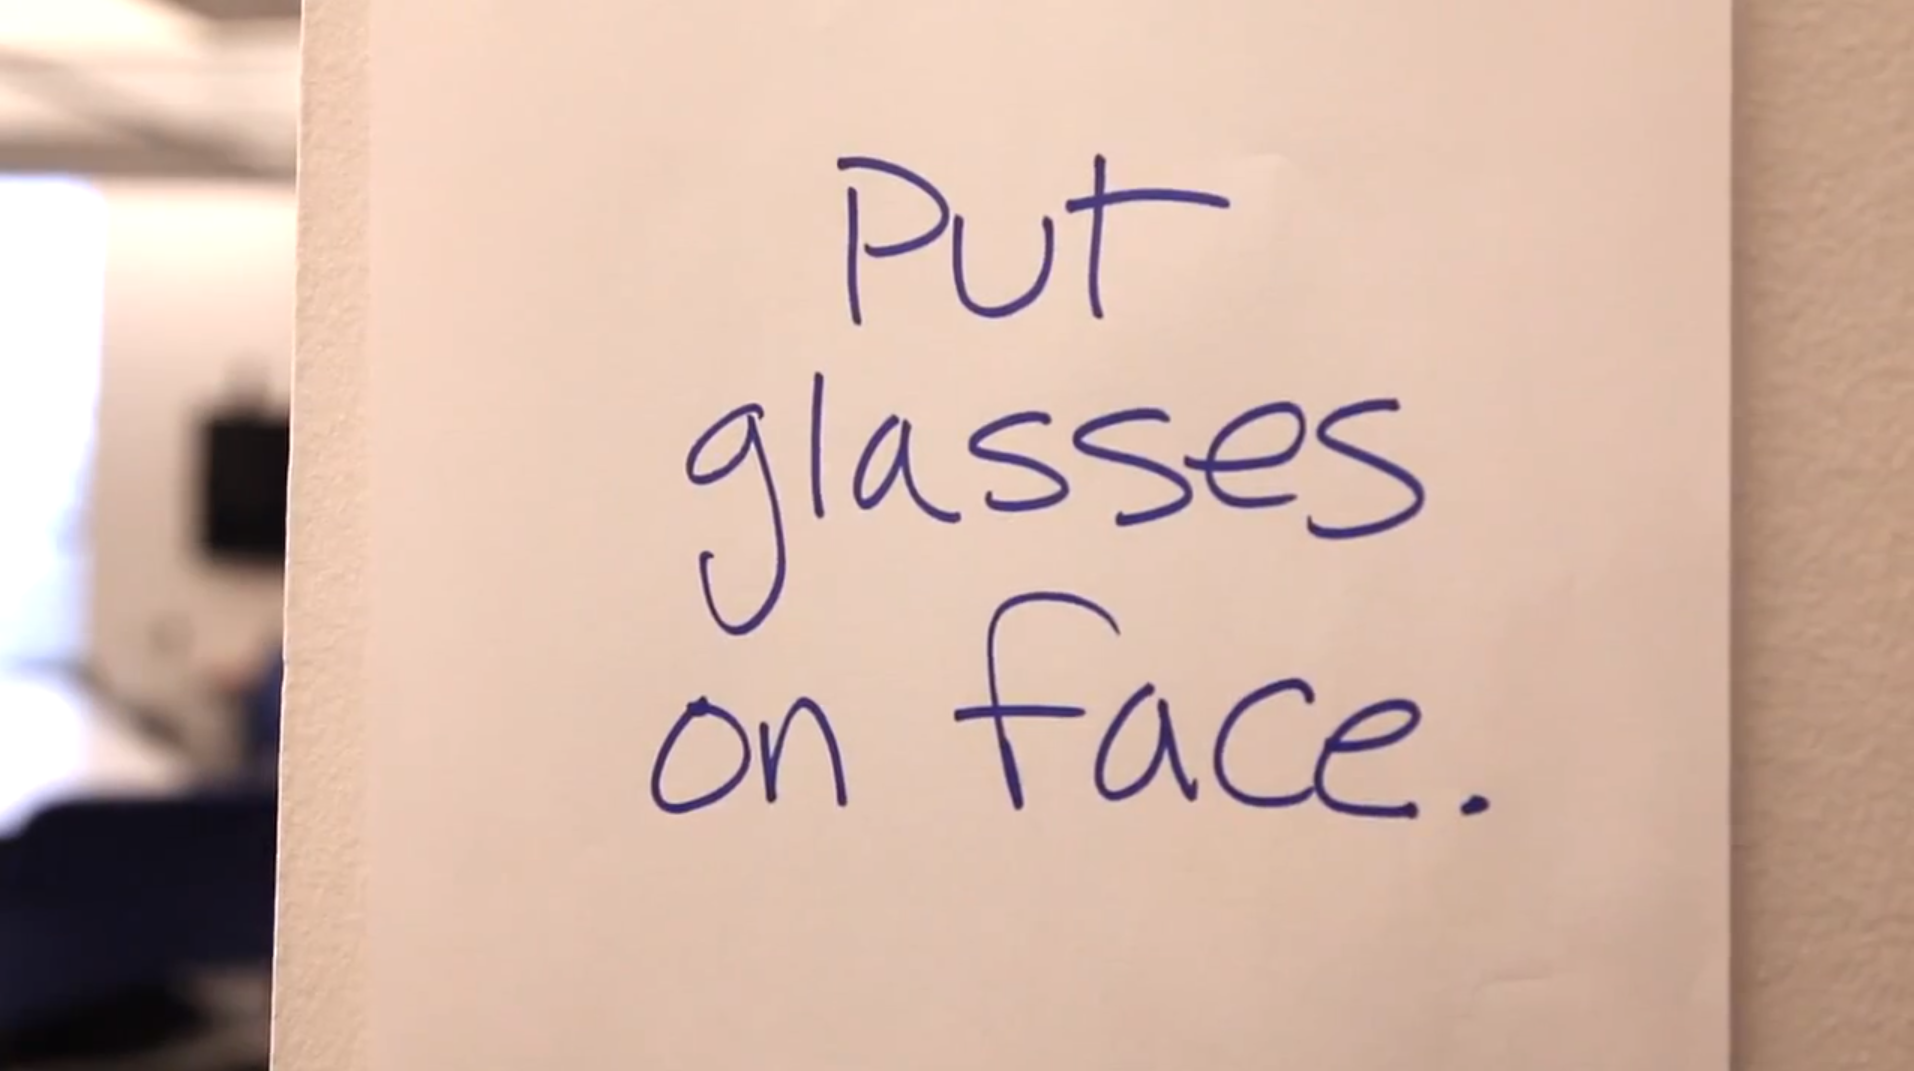 Put
glasses
on face.